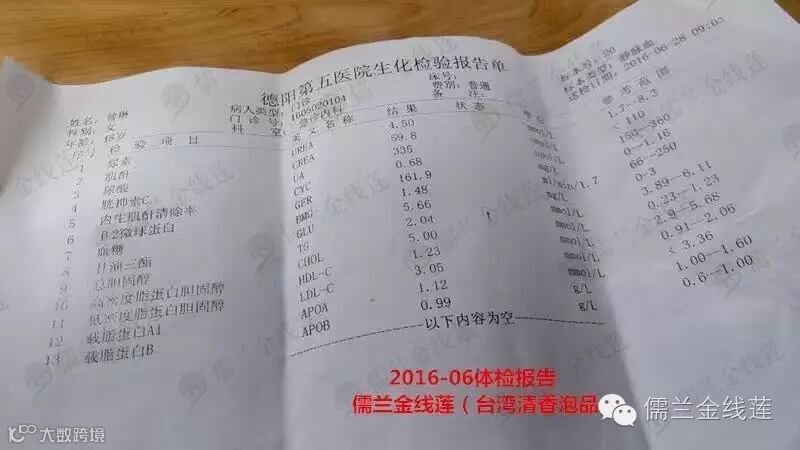 德阳第五医院生化检验报告单
姓名:曾琳 病人类型:门诊 床号: 标本号:80
性别:女 门诊号:1605020104 费别:普通 标本类型:静脉血
年龄:48岁 科室:急诊内科 备注: 送检日期:2016-06-28 09:03
序号 检验项目 英文名称 结果 状态 单位 参考范围
1 尿素 UREA 4.50 mmol/L 1.7--8.3
2 肌酐 CREA 59.8 <110
3 尿酸 UA 335 150--360
4 胱抑素C CYC 0.68 0--1.16
5 内生肌酐清除率 GFR 161.9 ml/min/1.7 66--250
6 B2微球蛋白 BMG 1.48 0--3
7 血糖 GLU 5.66 mmol/L 3.89--6.11
8 甘油三酯 TG 2.04 mmol/L 0.23--1.23
9 总胆固醇 CHOL 5.00 mmol/L 2.9--5.68
10 高密度脂蛋白胆固醇 HDL-C 1.23 mmol/L 0.91--2.06
11 低密度脂蛋白胆固醇 LDL-C 3.05 mmol/L < 3.36
12 载脂蛋白A1 APOA 1.12 g/L 1.00--1.60
13 载脂蛋白B APOB 0.99 g/L 0.6--1.00
以下内容为空
2016-06体检报告
儒兰金线莲（台湾清香泡品
儒兰金线莲
大数跨境